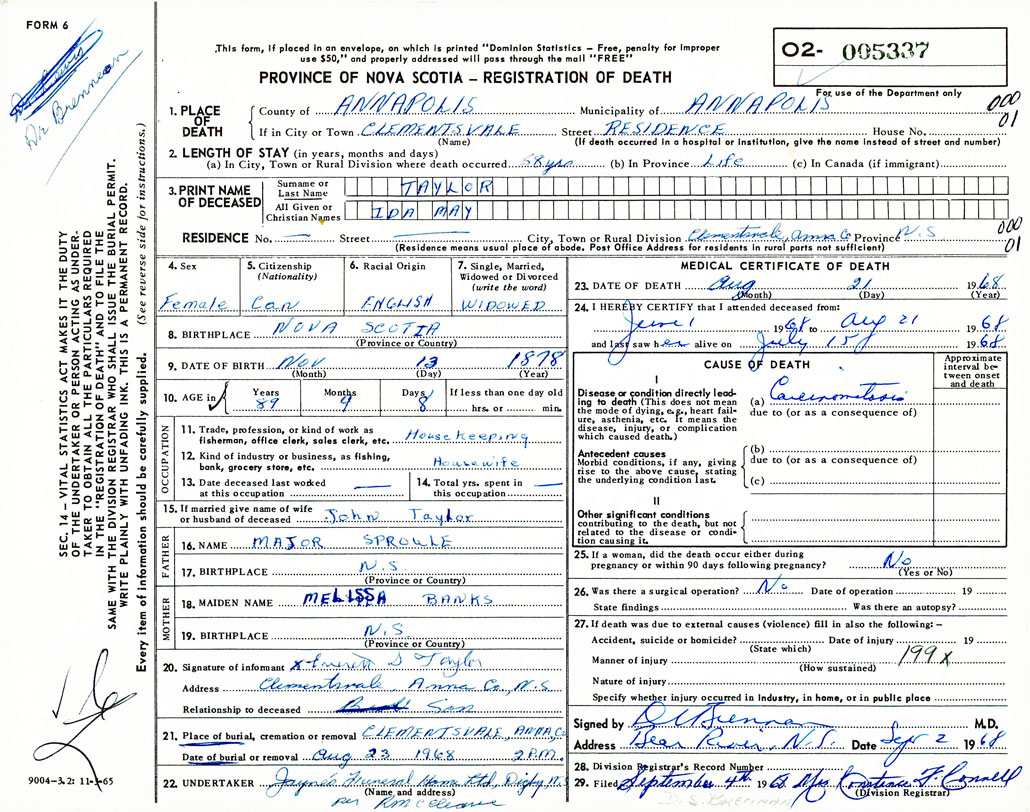 FORM 6
Dr Brennan
This form, if placed in an envelope, on which is printed "Dominion Statistics – Free, penalty for improper
use $50," and properly addressed will pass through the mail "FREE"
PROVINCE OF NOVA SCOTIA – REGISTRATION OF DEATH
O2- 005337
For use of the Department only
000
01
1. PLACE OF DEATH
County of ANNAPOLIS Municipality of ANNAPOLIS
If in City or Town CLEMENTSVALE Street RESIDENCE House No.
(Name) (If death occurred in a hospital or institution, give the name instead of street and number)
2. LENGTH OF STAY (in years, months and days)
(a) In City, Town or Rural Division where death occurred 58 yrs (b) In Province Life (c) In Canada (if immigrant)
3. PRINT NAME OF DECEASED
Surname or Last Name TAYLOR
All Given or Christian Names IDA MAY
RESIDENCE No. — Street — City, Town or Rural Division Clementsvale, Anna Co Province N.S
(Residence means usual place of abode. Post Office Address for residents in rural parts not sufficient)
000
01
4. Sex
Female
5. Citizenship
(Nationality)
Can
6. Racial Origin
ENGLISH
7. Single, Married,
Widowed or Divorced
(write the word)
WIDOWED
8. BIRTHPLACE NOVA SCOTIA
(Province or Country)
9. DATE OF BIRTH Nov 13 1878
(Month) (Day) (Year)
10. AGE in Years 89 Months 9 Days 8 If less than one day old
hrs. or min.
OCCUPATION
11. Trade, profession, or kind of work as
fisherman, office clerk, sales clerk, etc. Housekeeping
12. Kind of industry or business, as fishing,
bank, grocery store, etc. Housewife
13. Date deceased last worked
at this occupation —
14. Total yrs. spent in
this occupation —
15. If married give name of wife
or husband of deceased John Taylor
FATHER
16. NAME MAJOR SPROULE
17. BIRTHPLACE N.S
(Province or Country)
MOTHER
18. MAIDEN NAME MELISSA BANKS
19. BIRTHPLACE N.S.
(Province or Country)
20. Signature of informant x Everett S Taylor
Address Clementsvale Anna Co, N.S
Relationship to deceased Son
21. Place of burial, cremation or removal CLEMENTSVALE, ANNA, Co
Date of burial or removal Aug 23 1968 2 P.M.
22. UNDERTAKER Jayne's Funeral Home Ltd, Digby N.S
(Name and address)
per
MEDICAL CERTIFICATE OF DEATH
23. DATE OF DEATH Aug 21 1968
(Month) (Day) (Year)
24. I HEREBY CERTIFY that I attended deceased from:
June 1 1968 to Aug 21 1968
and last saw her alive on July 15 1968
CAUSE OF DEATH
Approximate
interval be-
tween onset
and death
I
Disease or condition directly lead-
ing to death (This does not mean
the mode of dying, e.g., heart fail-
ure, asthenia, etc. It means the
disease, injury, or complication
which caused death.)
(a) Carcinomatosis
due to (or as a consequence of)
Antecedent causes
Morbid conditions, if any, giving
rise to the above cause, stating
the underlying condition last.
(b)
due to (or as a consequence of)
(c)
II
Other significant conditions
contributing to the death, but not
related to the disease or condi-
tion causing it.
25. If a woman, did the death occur either during
pregnancy or within 90 days following pregnancy? No
(Yes or No)
26. Was there a surgical operation? No Date of operation 19
State findings Was there an autopsy?
27. If death was due to external causes (violence) fill in also the following: –
Accident, suicide or homicide? Date of injury 19
(State which)
Manner of injury 199X
(How sustained)
Nature of injury
Specify whether injury occurred in Industry, in home, or in public place
Signed by D U Brennan M.D.
Address Bear River, N.S. Date Sept 2 1968
28. Division Registrar's Record Number
29. Filed September 4th 1968 Mrs Constance F. Connell
(Division Registrar)
D. S. BRENNAN
SEC. 14 – VITAL STATISTICS ACT MAKES IT THE DUTY
OF THE UNDERTAKER OR PERSON ACTING AS UNDER-
TAKER TO OBTAIN ALL THE PARTICULARS REQUIRED
IN THE "REGISTRATION OF DEATH" AND TO FILE THE
SAME WITH THE DIVISION REGISTRAR WHO SHALL ISSUE THE BURIAL PERMIT.
WRITE PLAINLY WITH UNFADING INK. THIS IS A PERMANENT RECORD.
Every item of information should be carefully supplied. (See reverse side for instructions.)
9004-3.2: 11-1-65